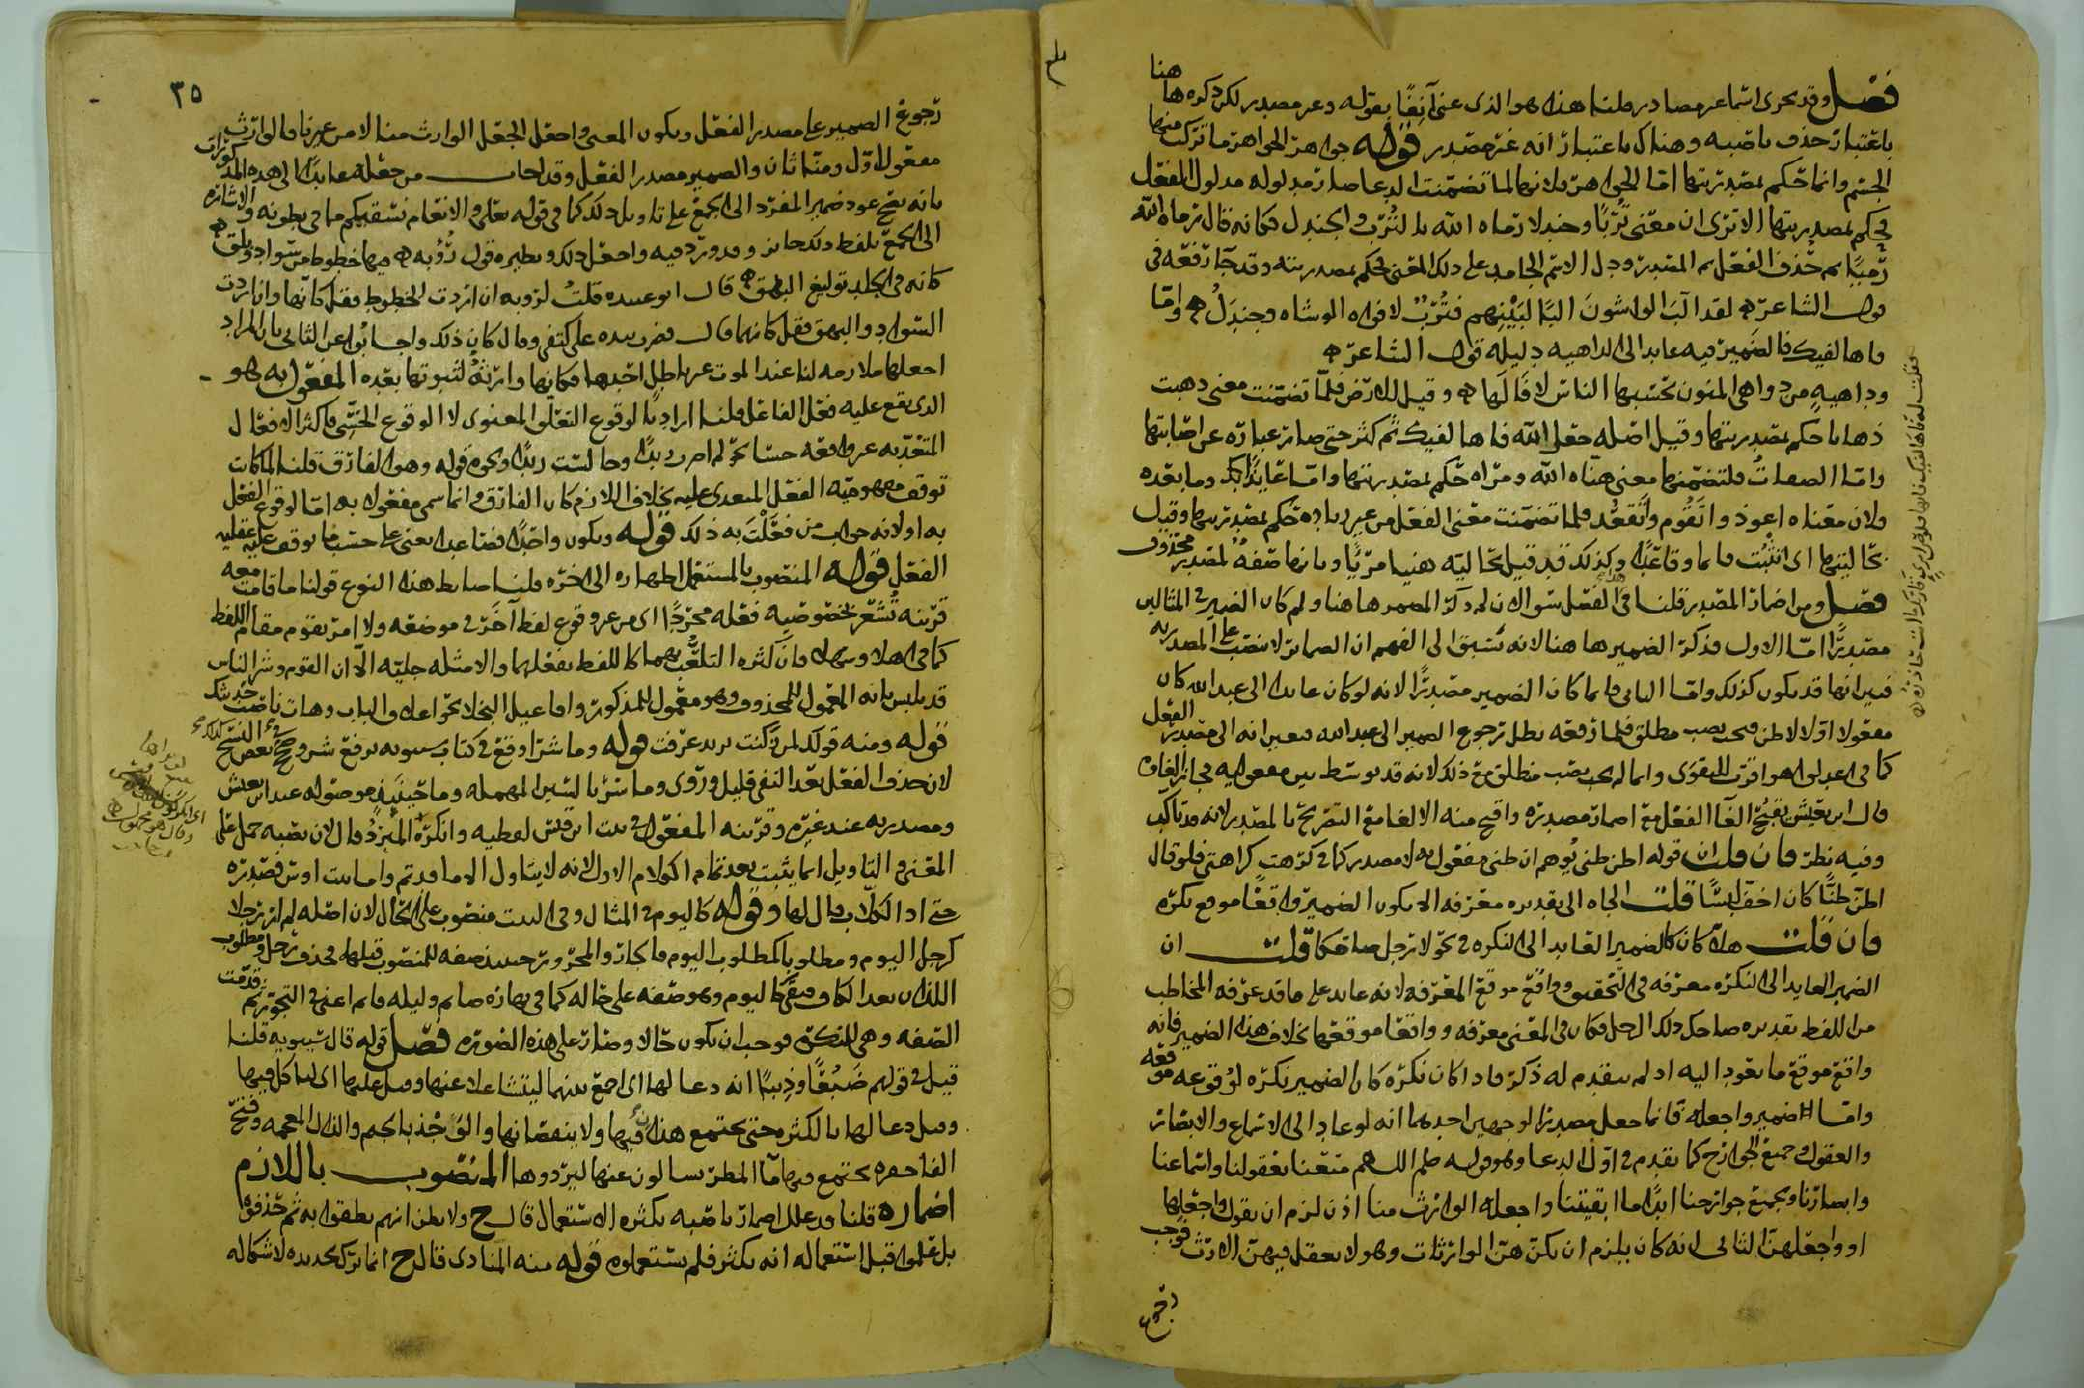 هنا
فصل وقد تجرى اسما غير مصادر قلنا هذا هو الذى عنى آنفًا بقوله وغير مصدر لكن ذكره ها
باعتبار حذف ناصبه وهناك باعتبار انه غير مصدر قوله جواهر الجواهر ما تركب منها
الجسم وانما حكم بمصدريتها اما الجواهر فلانها لما تضمنت الدعا صار مدلوله مدلول الفعل
فحكم بمصدريتها الا ترى ان معنى تُربًا وجندلا رماه الله بالترب والجندل فكانه قال رماه الله
رميًا ثم حذف الفعل ثم المصدر ودل الاسم الجامد على ذلك المعنى فحكم بمصدريته وقد جا رفعه فى
قول الشاعر لقد ألبَ الواشون ألبًا لبينهم فتُربٌ لافواه الوشاه وجندلُ واما
فاها لفيك فالضمير فيه عايد الى الداهيه دليله قول الشاعر
وداهيه من دواهى المنون تحسبها الناس لا فالها وقيل للارض فلما تضمنت معنى دهيت
ذهابا حكم بمصدريتها وقيل اصله جعل الله فاها لفيك ثم كثر حتى صار عبارة عن اصابتها
واما الصفات فلتضمنها معنى هناه الله ومراه حكم بمصدريتها واما عايذًا بك وما بعده
فلان معناه اعوذ واتقوم واتقعد فلما تضمنت معنى الفعل من غير زيادة حكم بمصدريتها وقيل
بحاليتها اى اتثبت قايما وقاعدًا وكذلك قد قيل بحاليه هنيا مريًا وبانها صفة لمصدر محذوف
فصل ومن اضمار المصدر قلنا فى الفصل سوالان لم ذكر المضمر هاهنا ولم كان الضمير فى المثالين
مصدرًا اما الاول فذكر الضمير هاهنا لانه يسبق الى الفهم ان الضماير لا تنتصب على المصدريه
فبين انها قد يكون كذلك واما الثانى فانما كان الضمير مصدرًا لانه لو كان عايدا الى عبد الله كان
مفعولا اولا لاظن فيجب نصب منطلق فلما رفعه بطل رجوع الضمير الى عبد الله فتعين انه الى مصدر الفعل
كما فى اعدلوا هو اقرب للتقوى وانما لم يجب نصب منطلق مع ذلك لانه قد توسط بين مفعوليه فجاز الغاوه
قال ابن يعيش يقبح الغا الفعل مع اضمار مصدره واقبح منه الالغا مع التصريح بالمصدر لانه قد تاكد
وفيه نظر فان قلت ان قوله اظن ظنى يُوهم ان ظنى مفعول به لا مصدر كما فى كرهت كراهتى فلو قال
اظن ظنًا كان اخف لبسًا قلت الجاه الى تقديره معرفه الا يكون الضمير واقعًا موقع نكره
فان قلت هلا كان كالضمير العايد الى النكره فى نحو لا رجل صاحكا قلت ان
الضمير العايد الى النكره معرفه فى التحقيق وواقع موقع المعرفه لانه عايد على ما قد عرفه المخاطب
من اللفظ تقديره صاحك ذلك الرجل فكان فى المعنى معرفه وواقعا موقعها بخلاف هذا الضمير فانه
واقع موقع ما يعود اليه اذ لم يتقدم له ذكر فاذا كان نكره كان الضمير نكره لوقوعه موقعه
واما الضمير واجعله فانما جعل مصدرا لوجهين احدهما انه لو عاد الى الاسماع والابصار
والعقول وجميع الجوارح كما تقدم فى اول الدعا وهو قوله صلعم اللهم متعنا بعقولنا واسماعنا
وابصارنا وبجميع جوارحنا ابدًا ما ابقيتنا واجعله الوارث منا اذن لزم ان يقول واجعلها
او واجعلهن الثانى انه كان يلزم ان يكن هن الوارثات وهو لا يعقل فيهن الارث فوجب
رجوع
٣٥
رجوع الضمير على مصدر الفعل ويكون المعنى واجعل الجعل الوارث منا لا من غيرنا فالوارث
مفعول اول ومنا ثان والضمير مصدر الفعل وقد اجاب من جعله عايدًا الى هذه المذكورات
بانه يصح عود ضمير المفرد الى الجمع على تاويل ذلك كما فى قوله تعالى وفى الانعام نسقيكم مما فى بطونه والاشاره
الى الجمع بلفظ ذلك جايز وقد ورد فيه واجعل ذلك ونظيره قول رُؤبه فيها خطوط من سواد وبلق
كانه فى الجلد توليع البهق قال ابو عبيده قلتُ لرؤبه ان اردت الخطوط فقل كانها وان اردت
السواد والبهق فقل كانهما قال فضرب بيده على كتفى وقال كان ذلك واجابوا عن الثانى بان المراد
اجعلها ملازمه لنا عند الموت غير باطل احدها فكانها وارثة لثبوتها بعده المفعول به هو
الذى يقع عليه فعل الفاعل قلنا اراد بالوقوع التعلق المعنوى لا الوقوع الحسى فاكثر الافعال
المتعديه عير واقعه حسا نحو لم اضرب زيدًا وجالست زيدًا ونحوه قوله وهو الفارق قلنا لما كانت
توقف مفهوميه الفعل المتعدى عليه بخلاف اللازم كان الفارق وانما سمى مفعولا به اما لوقوع الفعل
به او لانه جواب من فعَلْتَ به ذلك قوله ويكون واحدًا فصاعدا يعنى على حسب ما توقف عليه عقليه
الفعل قوله المنصوب بالمستعمل اظهاره الى اخره قلنا ضابط هذا النوع قولنا ما قامت معه
قرينه تُشعر بخصوصيه فعله مجردًا اى من غير وقوع لفظ آخر فى موضعه ولا امر يقوم مقام اللفظ
كما فى اهلا وسهلا فان كثره التلعب بهما كاللفظ بفعلهما والامثله جليه الا ان القوم وشر الناس
قد يلبس بانه المعمول للمحذوف وهو معمول للمذكور واما
قوله ومنه قولك لمن زكنت يريد عرفت قوله وما شرا وقع فى كتاب سيبويه برفع شر
لان حذف الفعل بعد النفى قليل وروى وما سرنا بالسين المهمله وما حينيذ موصوله عند ابن يعيش
ومصدريه عند غيره وقرينه المفعول فى بيت ابن قيس لفظيه وانكره المبرد قال لان نصبه حمل على
المعنى والتاويل انما يثبت بعد تمام الكلام الاول لانه لا يتناول الا ما قد تم واما بيت اوس فصدره
حتى اذا الكلاب قال لها وقوله كاليوم فى المثال وفى البيت منصوب على الحال لان اصله لم ار رجلا
كرجل اليوم ومطلوبا كمطلوب اليوم فالجار والمجرور حينيذ صفه للمنصوب قبلها فحذف رجل ومطلوب
اللذان بعد الكاف فبقى كاليوم وهو صفه على حاله كما فى نهاره صايم وليله قايم اعنى فى التجوز ثم قدمت
الصفه وهى للنكره فوجب ان يكون حالا وصار على هذه الصوره فصل قوله قال سيبويه قلنا
قيل فى قولهم ضَبُعًا وذيبًا انه دعا لها اى اجمع بينهما ليتشاغلا عنها وقيل عليها اى لياكل فيها
وقيل دعا لها بالكثره حتى يجتمع هذان فيها ولا ينقصانها والوَجْذ بالجيم والذال المعجمه وفتح
الفا حفره يجتمع فيها ما المطر سالون عنها ليردوها المنصوب باللازم
اضماره قلنا قد علل اضمار ناصبه بكثره الاستعمال قال ح ولا يظن انهم نطقوا به ثم حذفوه
بل علموا قبل استعماله انه يكثر فلم يستعملوه قوله منه المنادى قال ح انما ترك تحديده لاشكاله